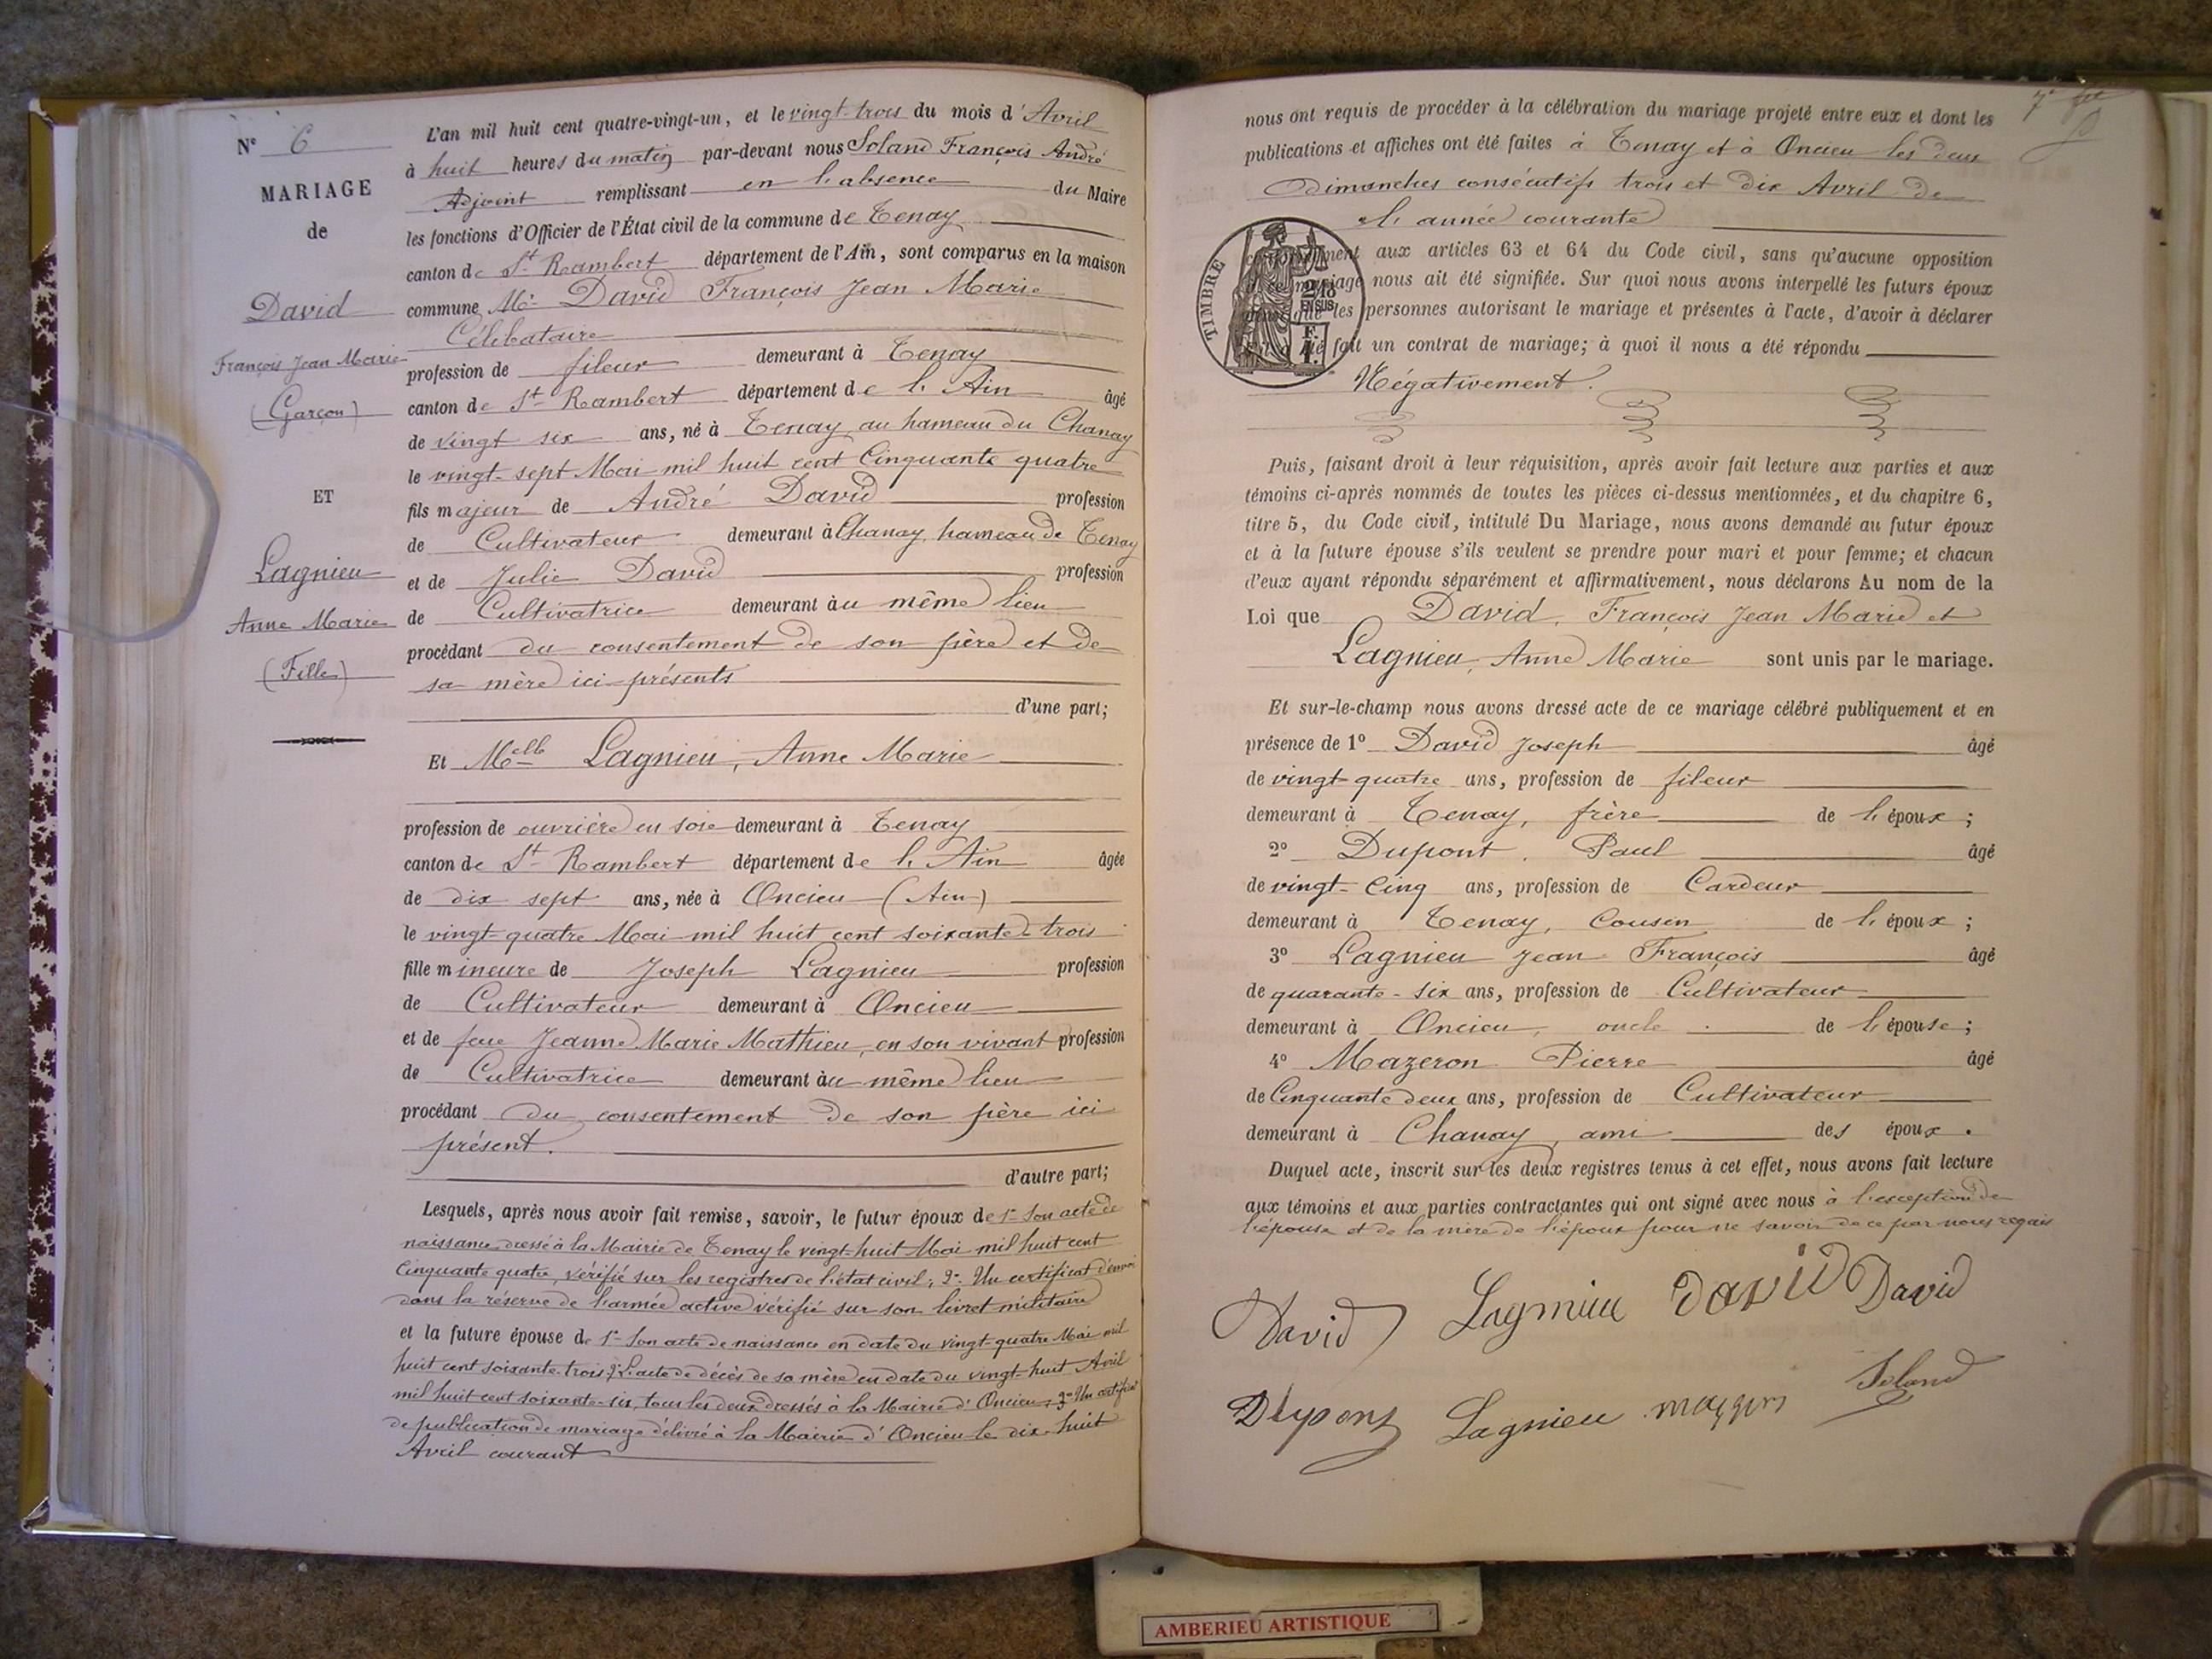 N° 6
MARIAGE
de
David
François Jean Marie
(Garçon)
ET
Lagnieu
Anne Marie
(Fille)
L'an mil huit cent quatre-vingt-un, et le vingt-trois du mois d'Avril
à huit heures du matin par-devant nous Soland François André
Adjoint remplissant en l'absence du Maire
les fonctions d'Officier de l'État civil de la commune de Tenay
canton de St Rambert département de l'Ain, sont comparus en la maison
commune Mr David François Jean Marie
Célibataire
profession de fileur demeurant à Tenay
canton de St Rambert département de l'Ain âgé
de vingt six ans, né à Tenay au hameau du Chanay
le vingt-sept Mai mil huit cent Cinquante quatre
fils majeur de André David profession
de Cultivateur demeurant à Chanay, hameau de Tenay
et de Julie David profession
de Cultivatrice demeurant au même lieu
procédant du consentement de son père et de
sa mère ici présents
d'une part;
Et Melle Lagnieu, Anne Marie
profession de ouvrière en soie demeurant à Tenay
canton de St Rambert département de l'Ain âgée
de dix sept ans, née à Oncieu (Ain)
le vingt-quatre Mai mil huit cent soixante-trois
fille mineure de Joseph Lagnieu profession
de Cultivateur demeurant à Oncieu
et de feue Jeanne Marie Mathieu, en son vivant profession
de Cultivatrice demeurant au même lieu
procédant du consentement de son père ici
présent.
d'autre part;
Lesquels, après nous avoir fait remise, savoir, le futur époux de 1° Son acte de
naissance dressé à la Mairie de Tenay le vingt-huit Mai mil huit cent
Cinquante quatre, vérifié sur les registres de l'état civil; 2° Un certificat d'envoi
dans la réserve de l'armée active vérifié sur son livret militaire
et la future épouse de 1° Son acte de naissance en date du vingt-quatre Mai mil
huit cent soixante-trois; 2° L'acte de décès de sa mère en date du vingt-huit Avril
mil huit cent soixante-six, tous les deux dressés à la Mairie d'Oncieu; 3° Un certificat
de publication de mariage délivré à la Mairie d'Oncieu le dix-huit
Avril courant
nous ont requis de procéder à la célébration du mariage projeté entre eux et dont les
publications et affiches ont été faites à Tenay et à Oncieu les deux
Dimanches consécutifs trois et dix Avril de
l'année courante
TIMBRE
2/10
EN SUS
F.
1.
aux articles 63 et 64 du Code civil, sans qu'aucune opposition
mariage nous ait été signifiée. Sur quoi nous avons interpellé les futurs époux
que les personnes autorisant le mariage et présentes à l'acte, d'avoir à déclarer
été fait un contrat de mariage; à quoi il nous a été répondu
Négativement.
Puis, faisant droit à leur réquisition, après avoir fait lecture aux parties et aux
témoins ci-après nommés de toutes les pièces ci-dessus mentionnées, et du chapitre 6,
titre 5, du Code civil, intitulé Du Mariage, nous avons demandé au futur époux
et à la future épouse s'ils veulent se prendre pour mari et pour femme; et chacun
d'eux ayant répondu séparément et affirmativement, nous déclarons Au nom de la
Loi que David, François Jean Marie et
Lagnieu, Anne Marie sont unis par le mariage.
Et sur-le-champ nous avons dressé acte de ce mariage célébré publiquement et en
présence de 1° David Joseph âgé
de vingt-quatre ans, profession de fileur
demeurant à Tenay, frère de l'époux;
2° Dupont, Paul âgé
de vingt-Cinq ans, profession de Cardeur
demeurant à Tenay, Cousin de l'époux;
3° Lagnieu Jean François âgé
de quarante-six ans, profession de Cultivateur
demeurant à Oncieu, oncle de l'épouse;
4° Mazeron Pierre âgé
de Cinquante deux ans, profession de Cultivateur
demeurant à Chanay, ami des époux.
Duquel acte, inscrit sur les deux registres tenus à cet effet, nous avons fait lecture
aux témoins et aux parties contractantes qui ont signé avec nous à l'exception de
l'épouse et de la mère de l'époux pour ne savoir de ce par nous requis
David Lagnieu David David
Dupont Lagnieu Soland
AMBERIEU ARTISTIQUE